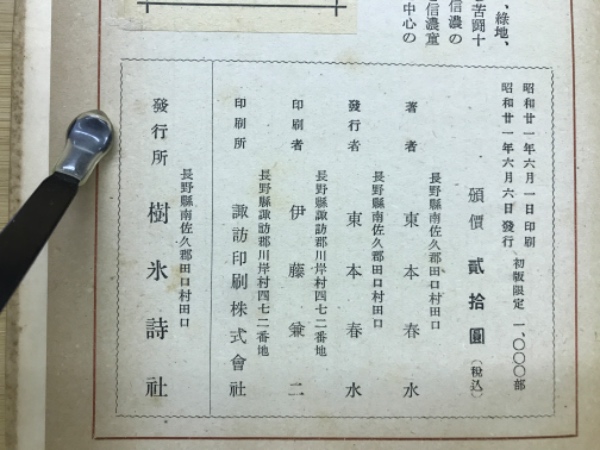 、綠地、
苦闘十
信濃の
信濃童
中心の
昭和廿一年六月一日印刷
昭和廿一年六月六日發行
初版限定 一、〇〇〇部
頒價 貳拾圓 (税込)
長野縣南佐久郡田口村田口
著者 東本春水
長野縣南佐久郡田口村田口
發行者 東本春水
長野縣諏訪郡川岸村四七二番地
印刷者 伊藤兼二
長野縣諏訪郡川岸村四七二番地
印刷所 諏訪印刷株式會社
長野縣南佐久郡田口村田口
發行所 樹氷詩社